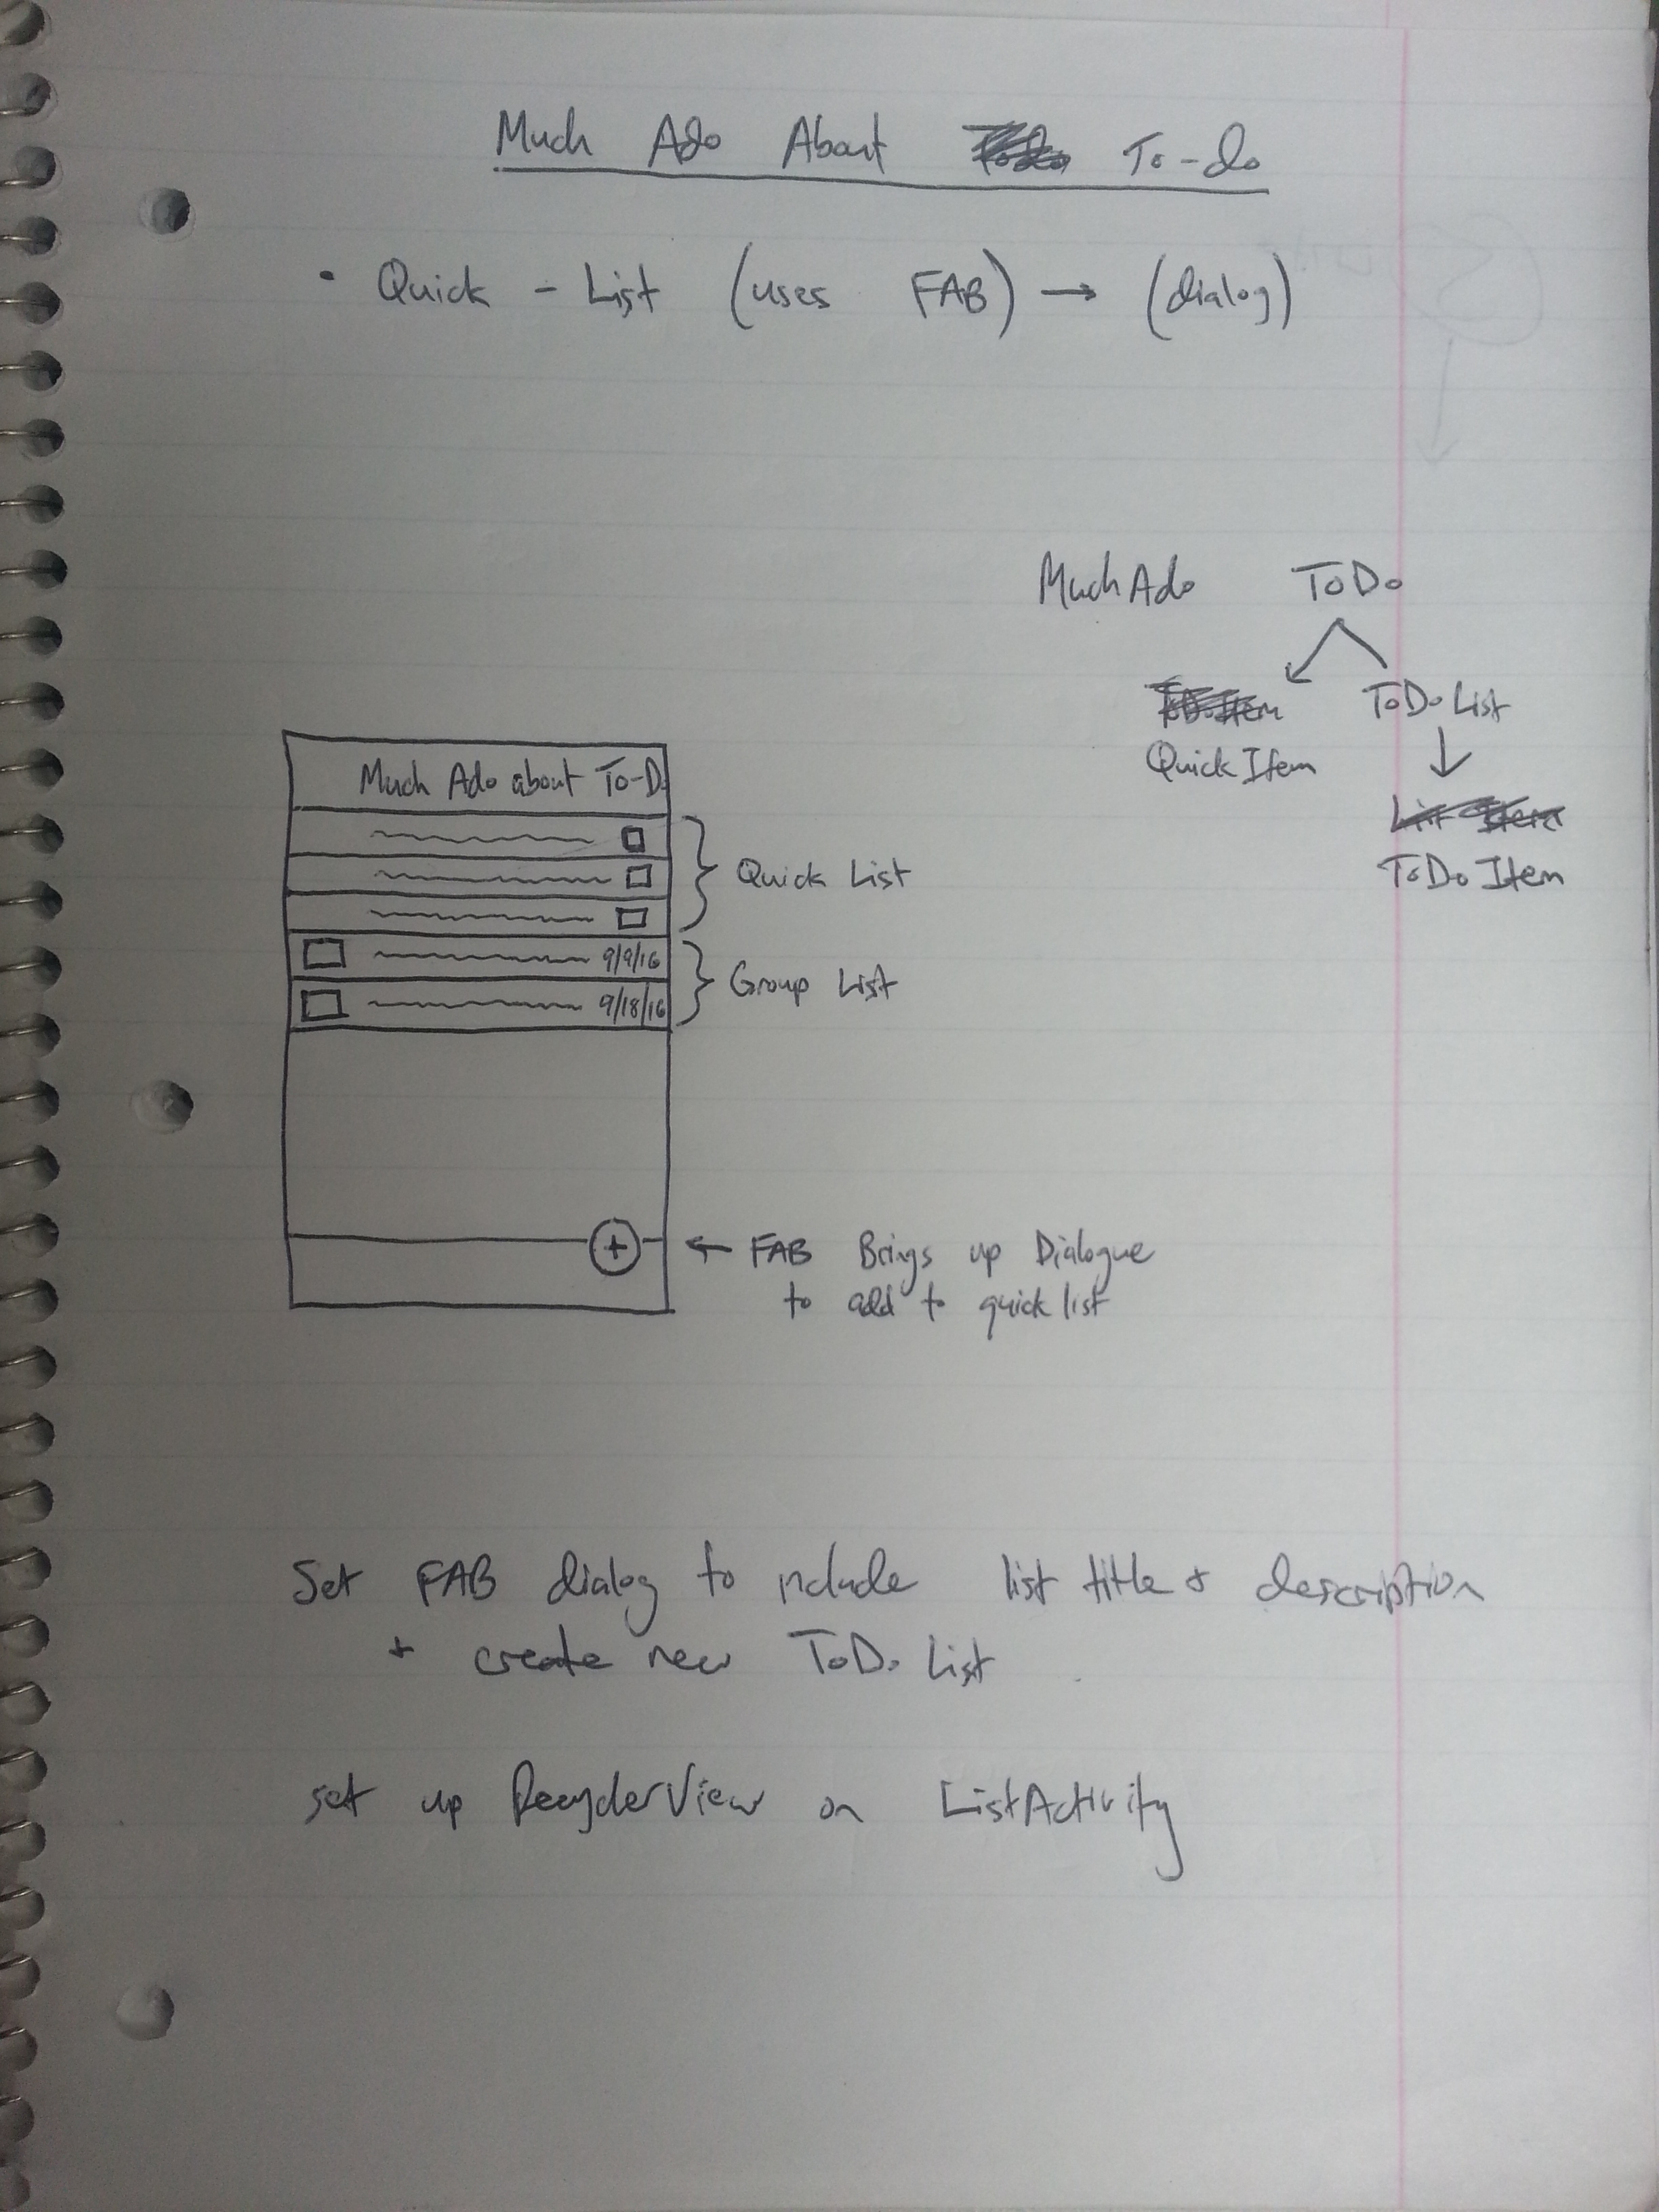 Much Ado About To-do
• Quick - List (uses FAB) → (dialog)
MuchAdo ToDo
ToDo Item ToDo List
Quick Item
List Item
ToDo Item
Much Ado about To-Do
Quick List
9/9/16
Group List
9/18/16
+
← FAB Brings up Dialogue
to add to quick list
Set FAB dialog to include list title + description
+ create new ToDo List
set up RecyclerView on ListActivity